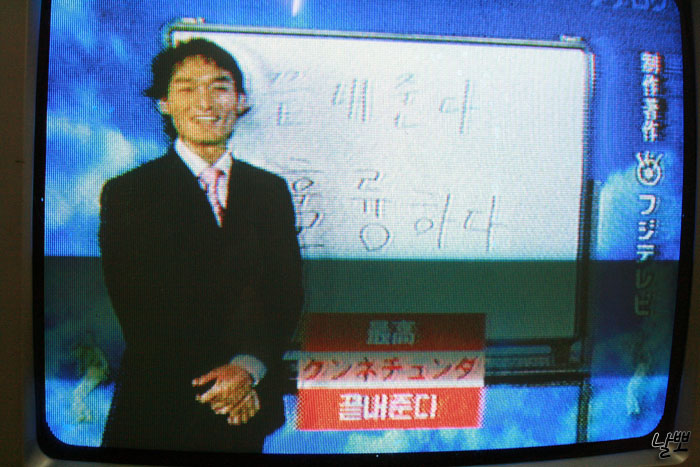 アナログ
끝내준다
훌륭하다
制作著作 フジテレビ
最高
クンネチュンダ
끝내준디
날뽀